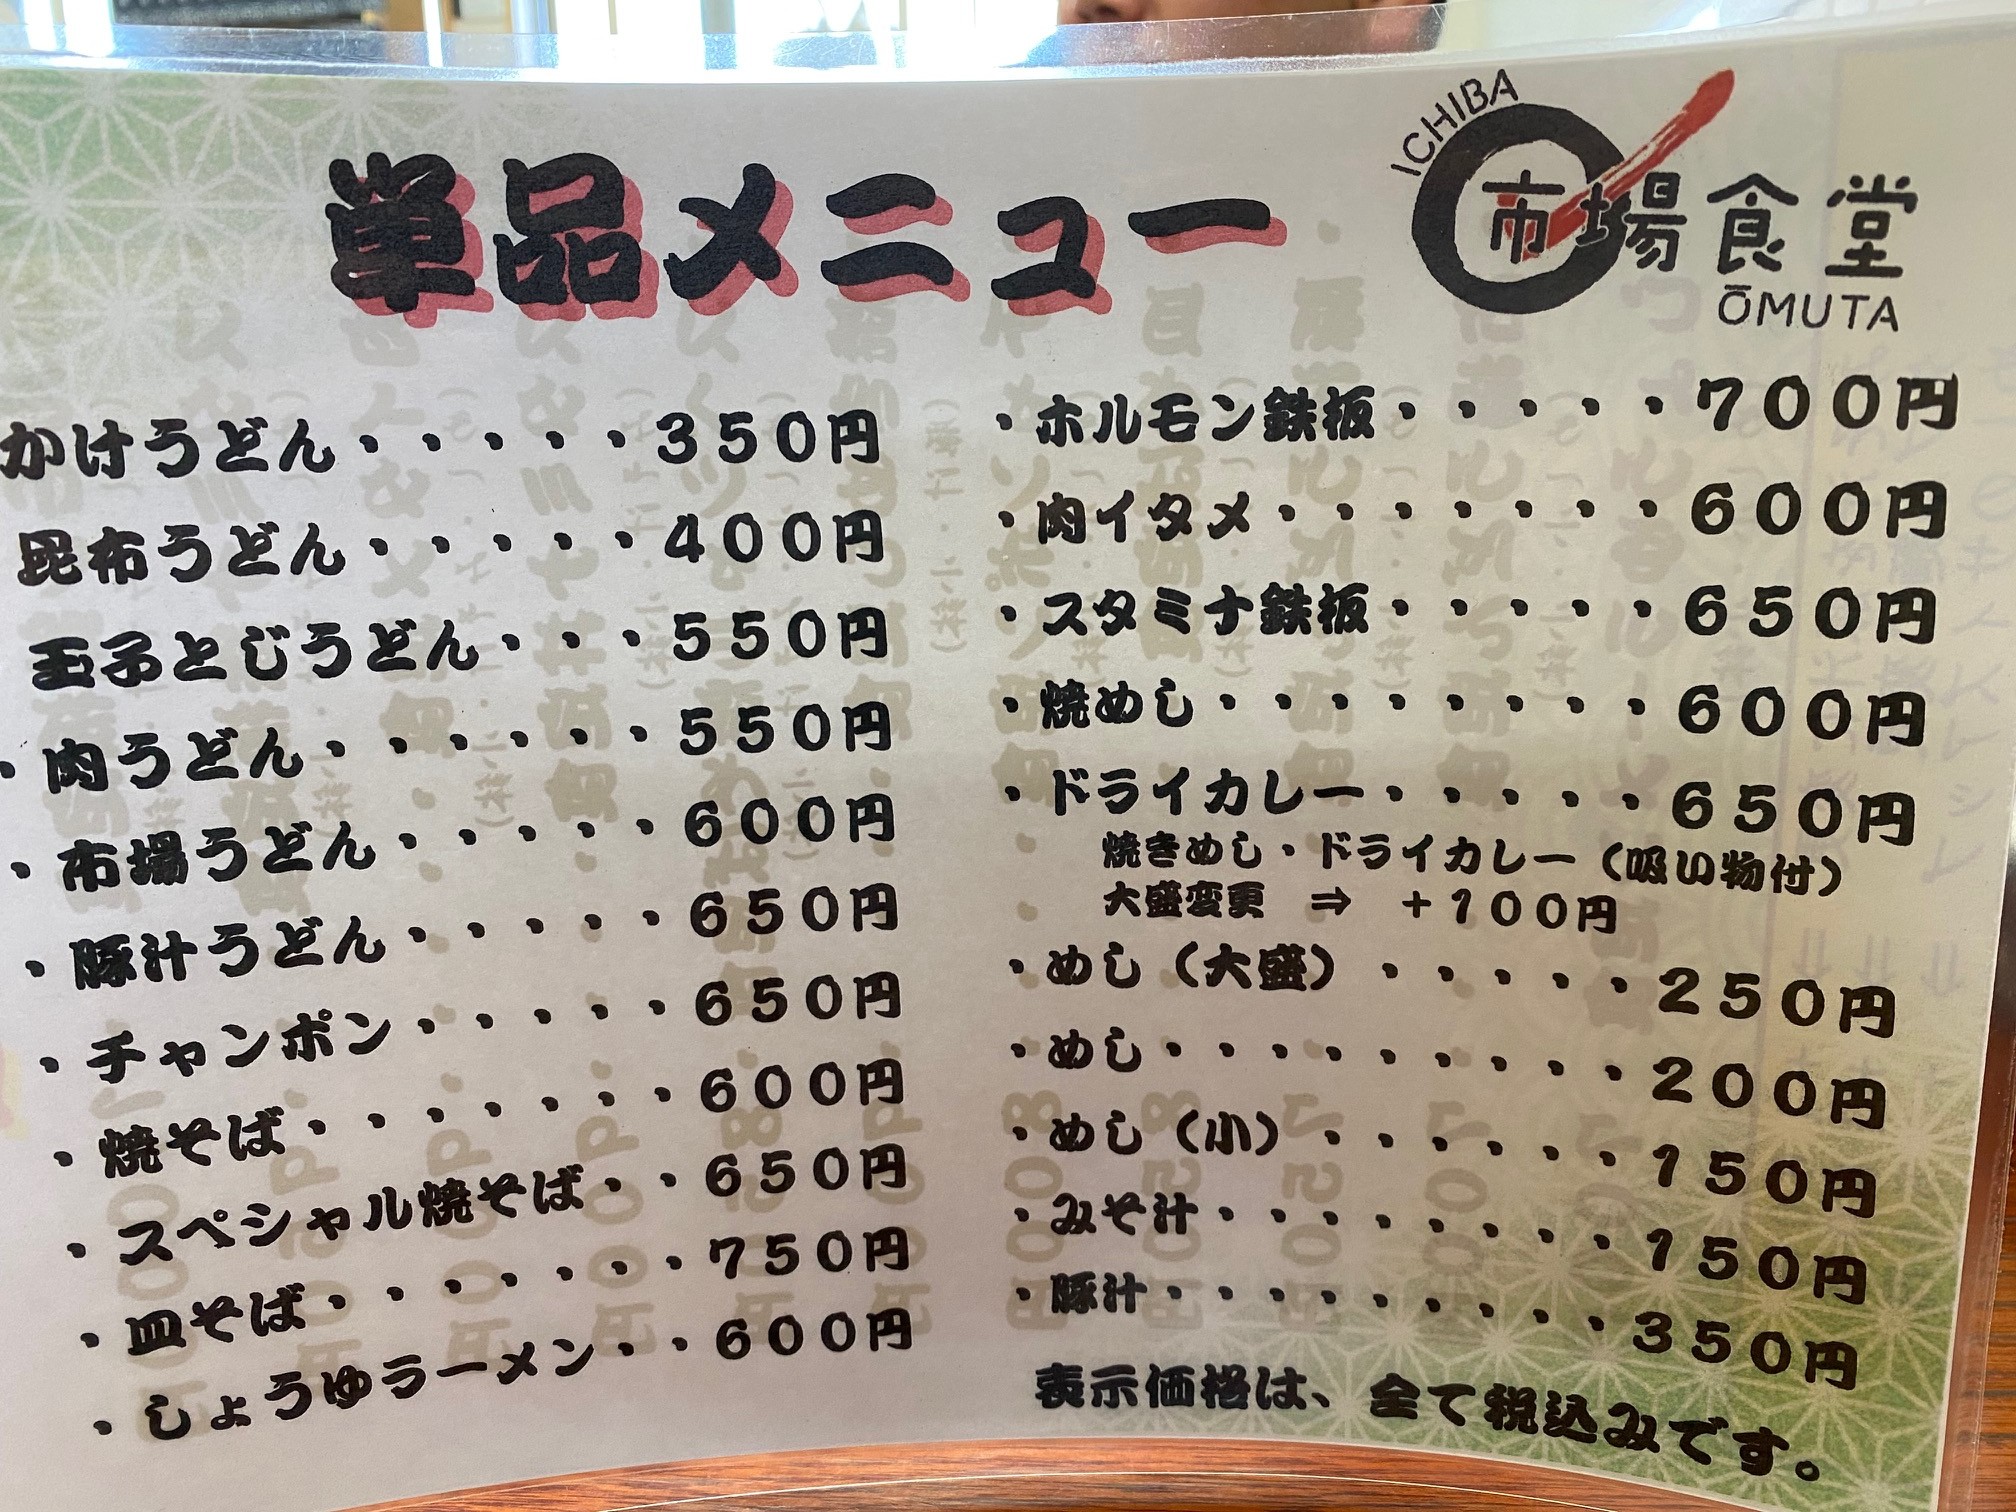 単品メニュー
ICHIBA
市場食堂
ŌMUTA
かけうどん・・・・・350円
昆布うどん・・・・・400円
玉子とじうどん・・・550円
・肉うどん・・・・・・550円
・市場うどん・・・・・600円
・豚汁うどん・・・・・650円
・チャンポン・・・・・650円
・焼そば・・・・・・・600円
・スペシャル焼そば・・650円
・皿そば・・・・・・・750円
・しょうゆラーメン・・600円
・ホルモン鉄板・・・・・700円
・肉イタメ・・・・・・・600円
・スタミナ鉄板・・・・・650円
・焼めし・・・・・・・・600円
・ドライカレー・・・・・650円
焼きめし・ドライカレー（吸い物付）
大盛変更 ⇒ +100円
・めし（大盛）・・・・・250円
・めし・・・・・・・・・200円
・めし（小）・・・・・・150円
・みそ汁・・・・・・・・150円
・豚汁・・・・・・・・・350円
表示価格は、全て税込みです。